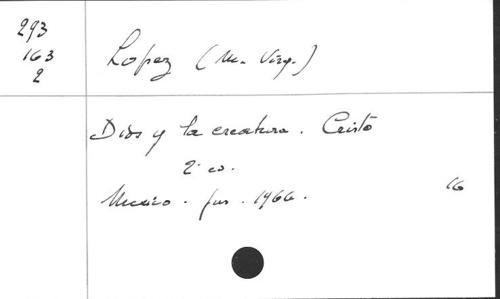 293
163
2
Lopez (M. Virg.)
Dios y la creatura. Cristo
2 ed.
Mexico. Jus. 1966.
16